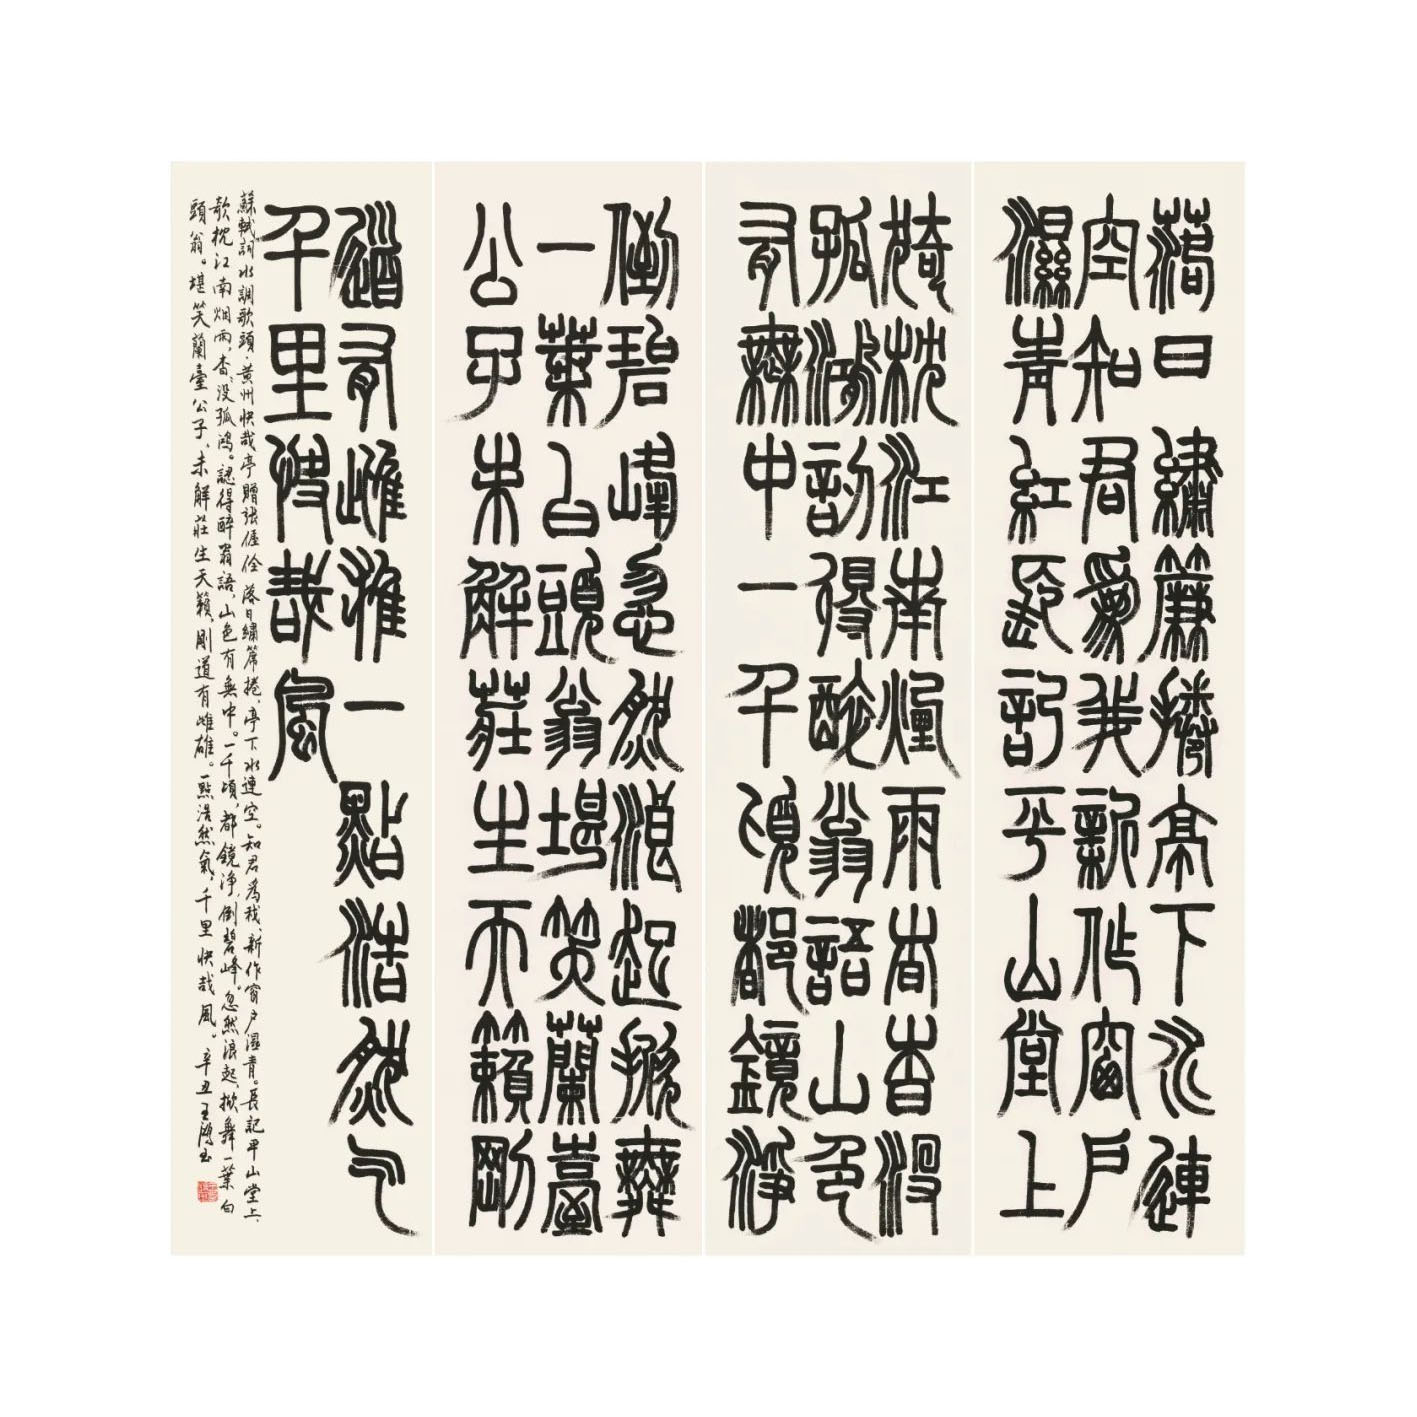 落日繡簾捲亭下水連
空知君為我新作窗戶
濕青紅長記平山堂上
欹枕江南煙雨杳杳沒
孤鴻認得醉翁語山色
有無中一千頃都鏡淨
倒碧峰忽然浪起掀舞
一葉白頭翁堪笑蘭臺
公子未解莊生天籟剛
道有雌雄一點浩然气
千里快哉風
蘇軾詞水調歌頭·黃州快哉亭贈張偓佺 落日繡簾捲、亭下水連空。知君為我、新作窗戶濕青。長記平山堂上、
欹枕江南烟雨,杳、沒孤鴻。認得醉翁語,山色有無中。一千頃,都鏡淨,倒碧峰。忽然浪起、掀舞一葉白
頭翁。堪笑蘭臺公子、未解莊生天籟,剛道有雌雄。一點浩然氣,千里快哉風。辛丑王鴻玉